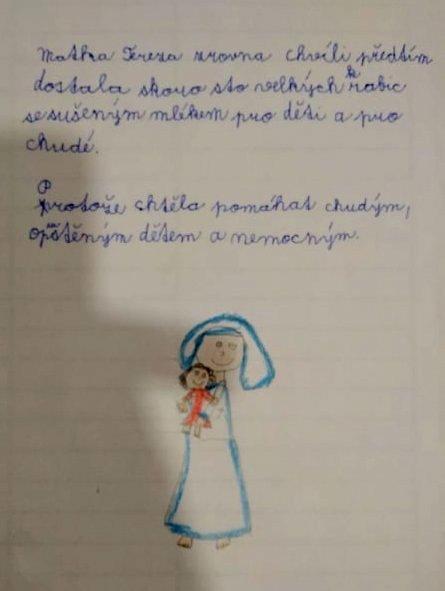 Matka Tereza zrovna chvíli předtím
dostala skoro sto velkých krabic
se sušeným mlékem pro děti a pro
chudé.
Protože chtěla pomáhat chudým,
opuštěným dětem a nemocným.